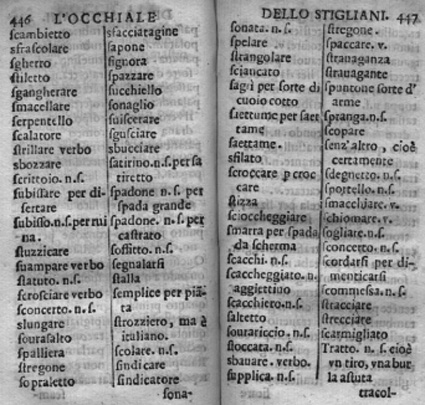 446 L'OCCHIALE
scambietto
sfrascolare
sgherro
stiletto
sgangherare
smacellare
serpentello
scalatore
strillare verbo
sbozzare
scrittoio. n.s.
subissare per di-
sertare
subisso.n.s.per rui
na.
stuzzicare
suampare verbo
statuto. n.s.
scrosciare verbo
sconcerto. n.s.
slungare
sourasalto
spalliera
stregone
sopraletto
sfacciatagine
sapone
signora
spazzare
succhiello
sonaglio
suiscerare
sgusciare
sbucciare
satirino.n.s.per sa
tiretto
spadone n.s. per
spada grande
spadone. n.s. per
castrato
soffitto. n.s.
segnalarsi
stalla
semplice per piã-
ta
strozziero, ma è
italiano.
scolare. n.s.
sindicare
sindicatore
sona-
DELLO STIGLIANI. 447
sonata. n.s.
spelare
strangolare
sciancato
sagrì per sorte di
cuoio cotto
saettume per saet
tame
saettame.
sfilato
scroccare p croc
care
stizza
scioccheggiare
smarra per spada
da scherma
scacchi. n.s.
scaccheggiato. n.
aggiettiuo
scacchiero.n.s.
saltetto
sourariccio. n.s.
stoccata. n.s.
sbauare. verbo.
supplica. n.s.
stregone.
spaccare. v.
strauaganza
strauagante
spuntone sorte d'
arme
spranga.n.s.
scopare
senz'altro, cioè
certamente
sdegnetto. n.s.
sportello. n.s.
smacchiare. v.
schiomare. v.
sogliare.n.s.
sconcerto. n.s.
scordarsi per di-
menticarsi
scommessa. n.s.
stracciare
strecciare
scarmigliato
Tratto. n. s. cioè
vn tiro, vna bur
la astuta
tracol-